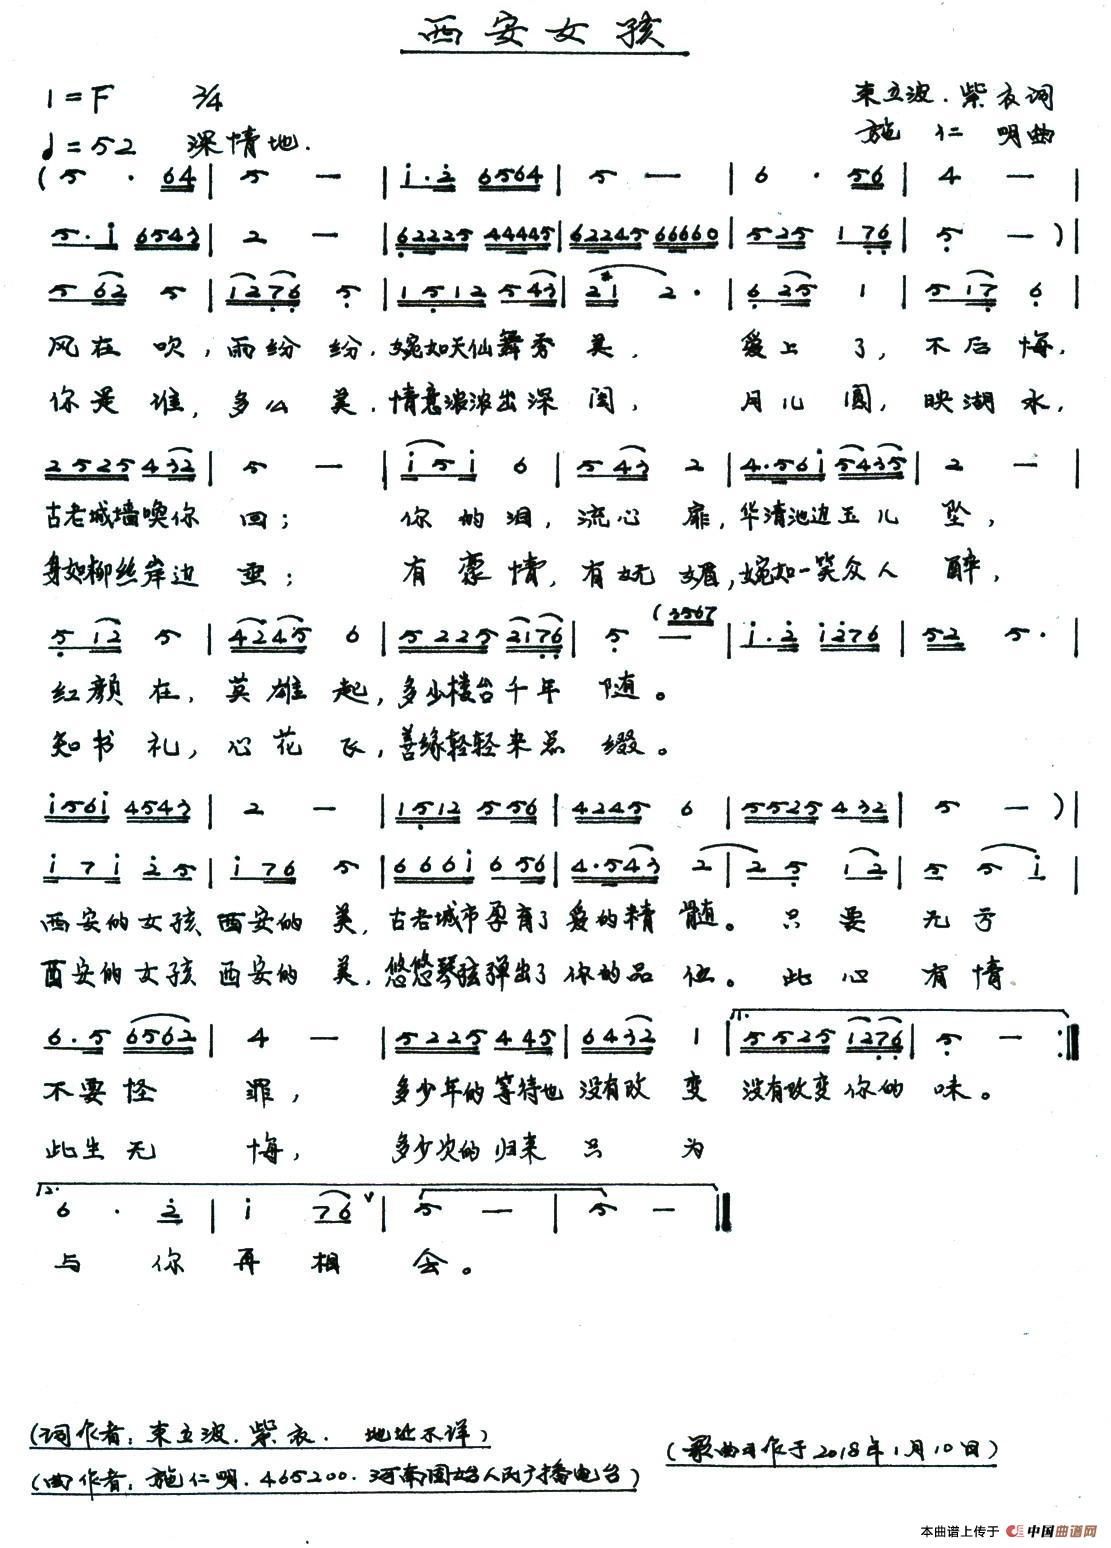 西安女孩
1=F 2/4
束立波.紫衣词
♩=52 深情地.
施仁明曲
(5 · 64 | 5 — | i·2 6564 | 5 — | 6 · 56 | 4 — |
5·i 6543 | 2 — | 62225 44445 | 62245 66660 | 525 176 | 5 — ) |
5 62 5 | 1276 5 | 1512 543 | 21 2· | 6 25 1 | 5 17 6 |
风在吹,雨纷纷.婉如天仙舞秀美,爱上了,不后悔.
你是谁,多么美.情意浓浓出深闺,月儿圆,映湖水,
2525 432 | 5 — | i 5 i 6 | 5 43 2 | 4·56i 5435 | 2 — |
古老城墙唤你回;你的泪,流心扉,华清池边玉儿坠,
身如柳丝岸边垂;有豪情,有妩媚,婉如一笑众人醉,
5 12 5 | 4245 6 | 5225 2176 | 5 (3567 — | i·2 i276 | 52 5· |
红颜在,英雄起,多少楼台千年随。
知书礼,心花飞,善缘轻轻来点缀。
i56i 4543 | 2 — | 1512 556 | 4245 6 | 5525 432 | 5 — ) |
i 7 i 2 5 | i 76 5 | 666i 6 56 | 4·543 2 | 2 5 12 | 5 5 i |
西安的女孩西安的美,古老城市孕育了爱的精髓。只要无亏
西安的女孩西安的美,悠悠琴弦弹出了你的品位。此心有情
6·5 6562 | 4 — | 5225 445 | 6432 1 | 1. 5525 1276 | 5 — :|
不要怪罪,多少年的等待也没有改变没有改变你的味。
此生无悔,多少次的归来只为
2. 6 · 2 | i 76 ∨ | 5 — | 5 — ‖
与你再相会。
(词作者:束立波.紫衣. 地址不详)
(歌曲习作于2018年1月10日)
(曲作者:施仁明.465200.河南固始人民广播电台)
本曲谱上传于 中国曲谱网